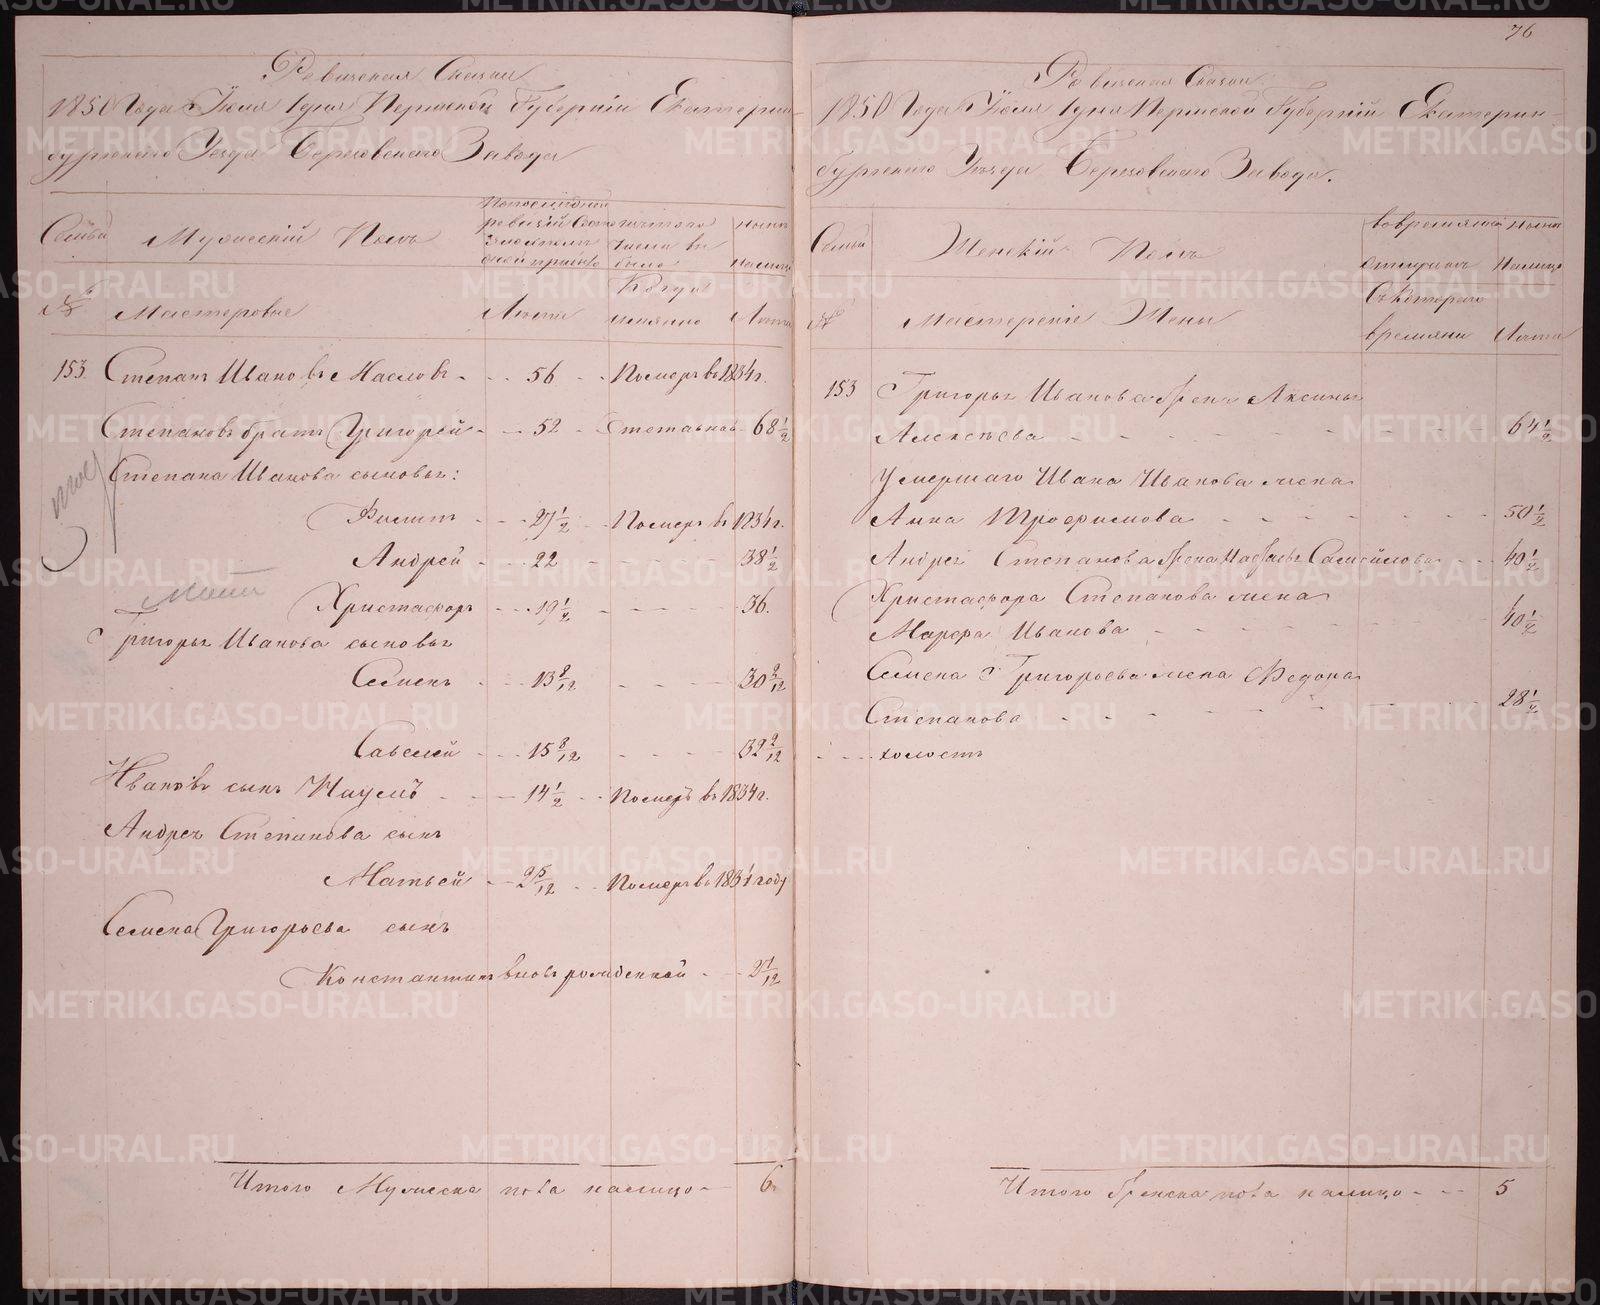 76
Ревизская Сказка
1850 Года Июля 1 дня Пермской Губерніи Екатерин-
бургского Уезда Березовского Завода
Семьи
Мужескій Полъ
По последней
ревизіи состояло
и после оной прибыло
Изъ того
числа вы
было
Ныне
на лицо
№
Мастеровые
Лета
Когда
имянно
Лета
153. Степанъ Ивановъ Масловъ - - - 56 - - Померъ в 1834 г.
Степановъ братъ Григорей - - - 52 - - 68 1/2
Степана Иванова сыновья:
Филипъ - - - 27 1/2 - - Померъ в 1834 г.
Андрей - - - 22 - - - 38 1/2
Христафоръ - - - 19 1/2 - - - 36.
Григорья Иванова сыновья
Семенъ - - - 13 8/12 - - - 30 2/12
Савелей - - - 15 8/12 - - - 32 2/12
Ивановъ сынъ Наумъ - - - 14 1/2 - - Померъ в 1834 г.
Андрея Степанова сынъ
Матвей - - 2 5/12 - - Померъ в 1834 году
Семена Григорьева сынъ
Константинъ вновь рожденной - - 2 7/12
Итого Мужеска пола налицо - 6.
Ревизская Сказка
1850 Года Июля 1 дня Пермской Губерній Екатерин-
бургского Уезда Березовского Завода.
Семьи
Женскій Полъ
Во временной
отлучке
Ныне
Налицо
№
Мастерскіе Жены
Съ котораго
времяни
Лета
153 Григорья Иванова жена Аксинья
Алексеева - - - 64 1/2
Умершаго Ивана Иванова жена
Анна Трофимова - - - 50 1/2
Андрея Степанова жена Настасья Самойлова - - - 40 1/2
Христафора Степанова жена
Марфа Иванова - - - 40 1/2
Семена Григорьева жена Федора
Степанова - - - 28 1/2
- - - холостъ
Итого женска пола налицо - - - 5
METRIKI.GASO-URAL.RU